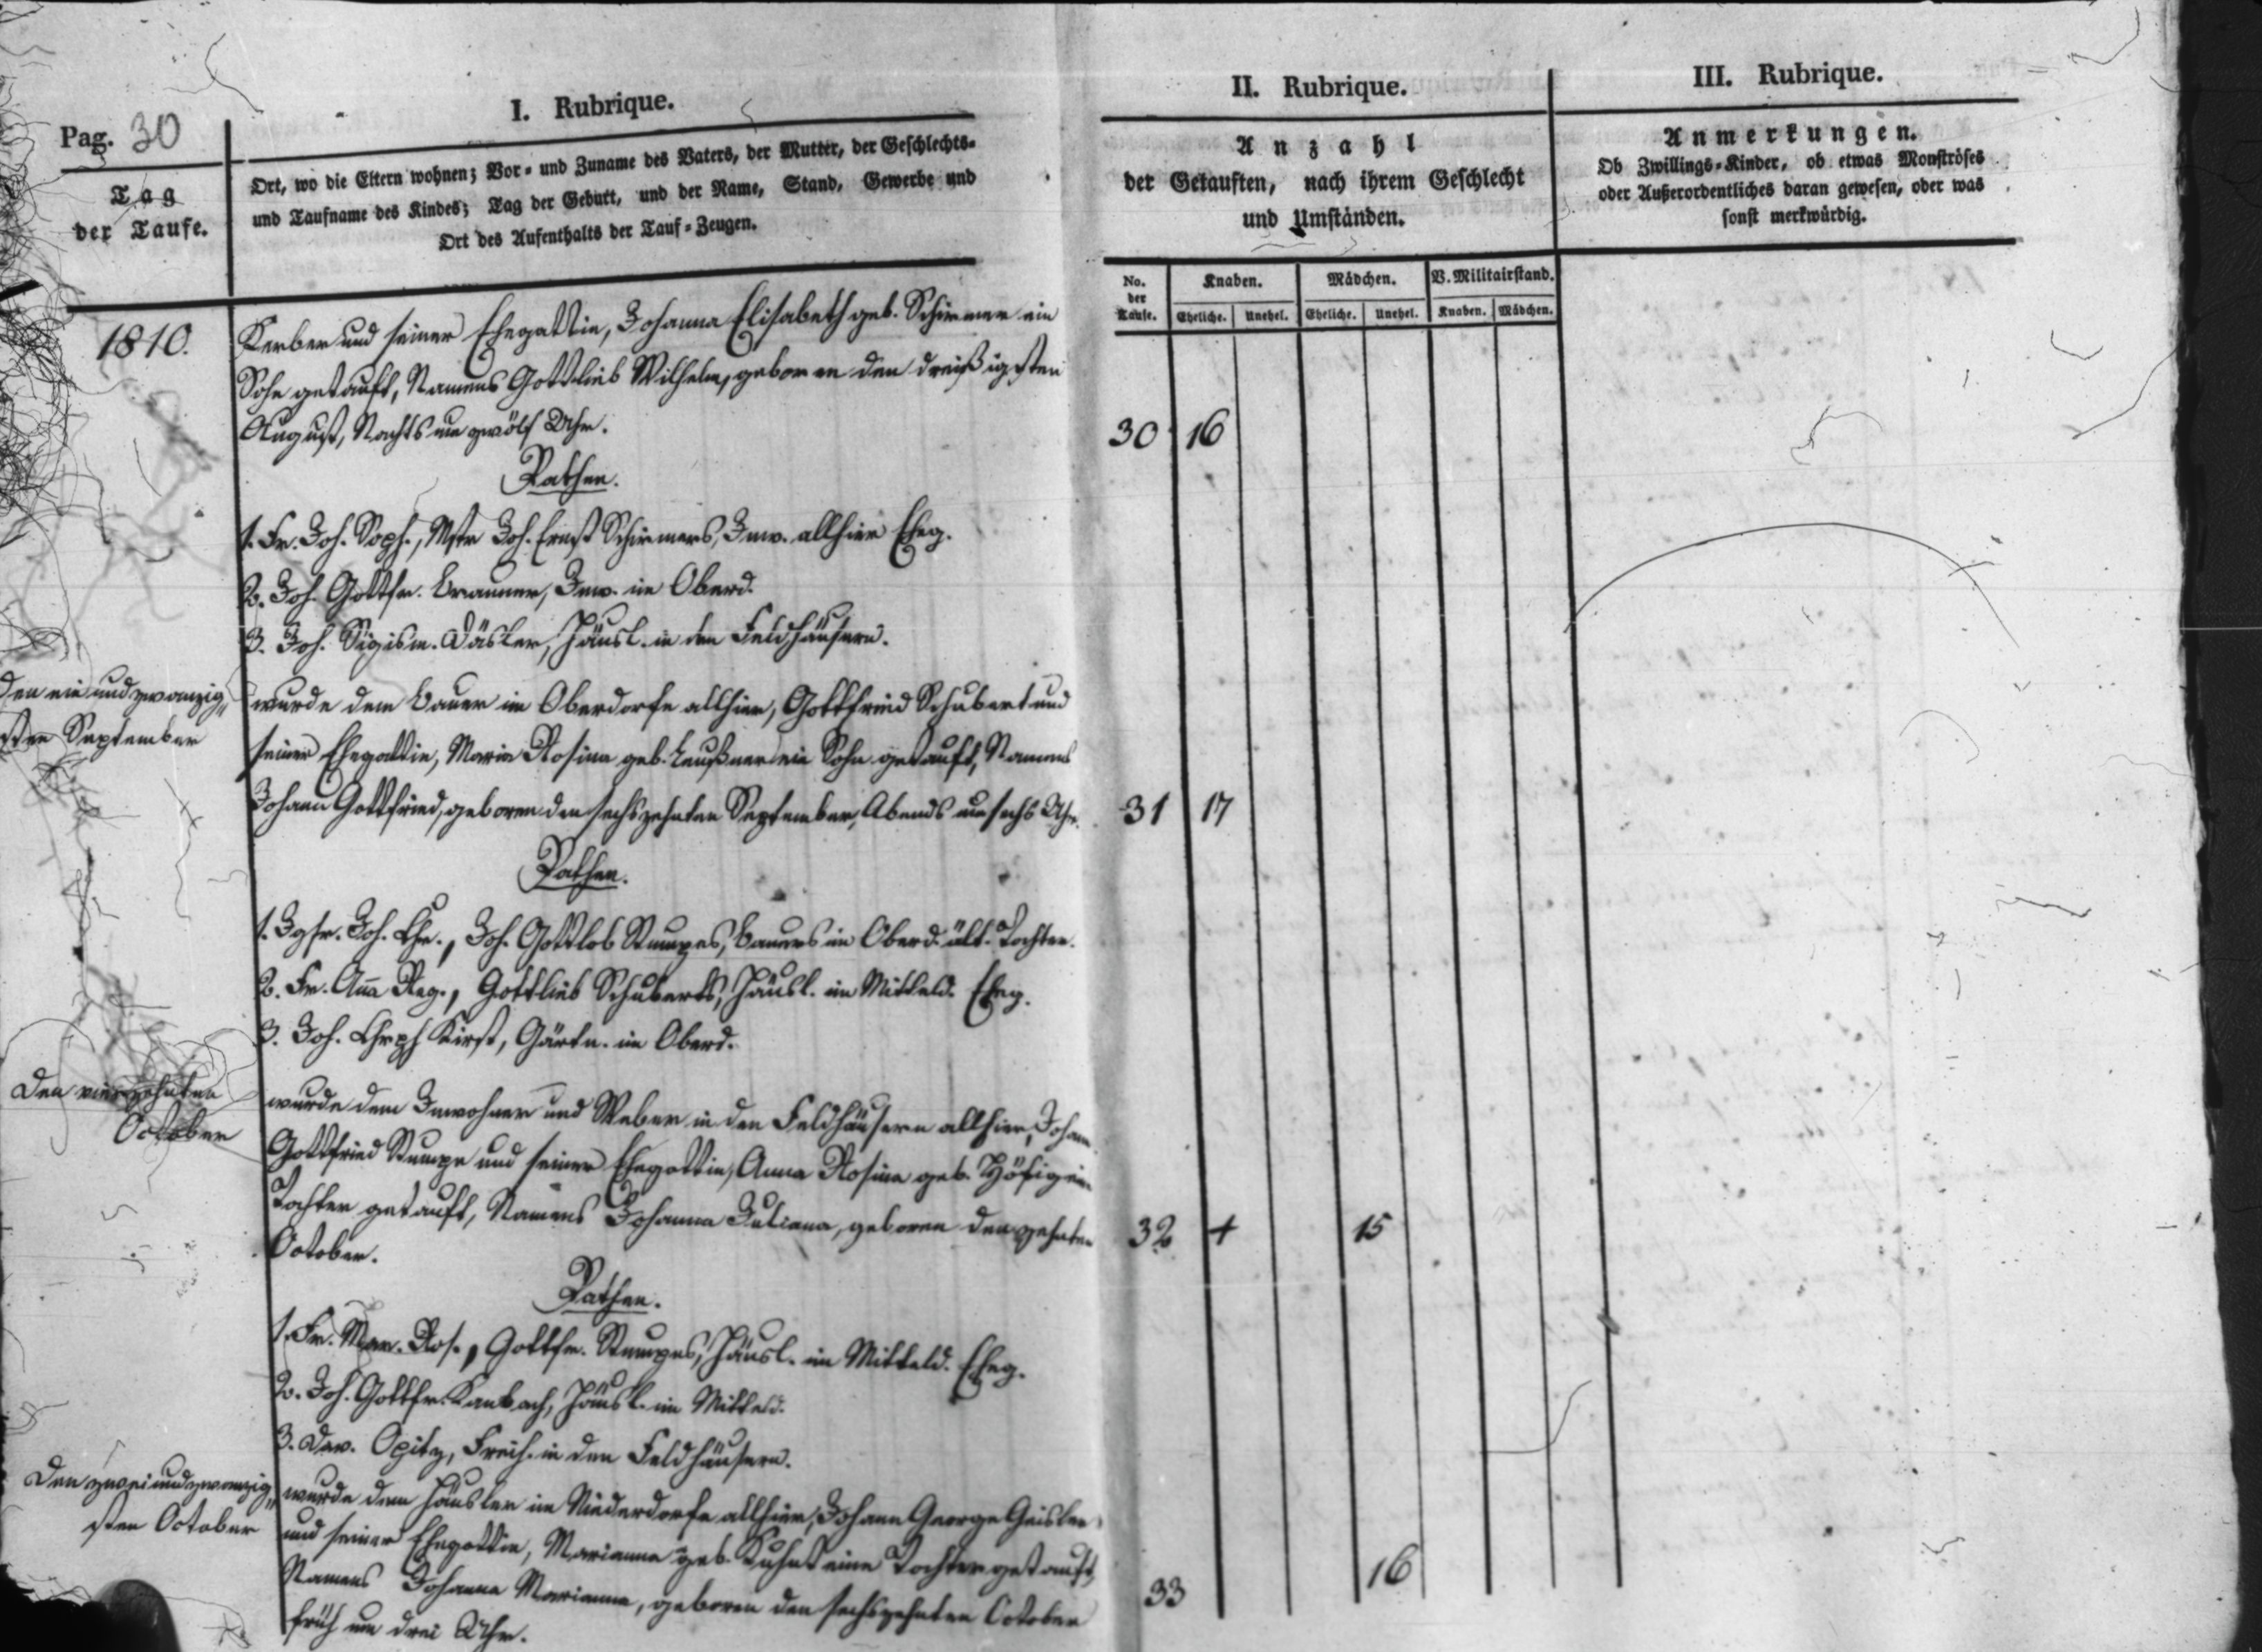 Pag. 30
I. Rubrique.
II. Rubrique.
III. Rubrique.
Tag
der Taufe.
Ort, wo die Eltern wohnen; Vor- und Zuname des Vaters, der Mutter, der Geschlechts-
und Taufname des Kindes; Tag der Geburt, und der Name, Stand, Gewerbe und
Ort des Aufenthalts der Tauf-Zeugen.
Anzahl
der Getauften, nach ihrem Geschlecht
und Umständen.
Anmerkungen.
Ob Zwillings-Kinder, ob etwas Monströses
oder Außerordentliches daran gewesen, oder was
sonst merkwürdig.
No. der Taufe.
Knaben. Mädchen. V. Militairstand.
Eheliche. Unehel. Eheliche. Unehel. Knaben. Mädchen.
1810.
Kerber und seiner Ehegattin, Johanna Elisabeth geb. Schirmer ein
Sohn getauft, Namens Gottlieb Wilhelm, geboren den dreißigsten
August, Nachts um zwölf Uhr.
30 16
Pathen.
1. Fr. Joh. Soph., Mstr Joh. Ernst Schirmers, Inw. allhier Eheg.
2. Joh. Gottfr. Brauner, Inw. im Oberd.
3. Joh. Sigism. Däsler, Häusl. in den Feldhäusern.
Den ein und zwanzig„
sten September
wurde dem Bauer im Oberdorfe allhier, Gottfried Schubert und
seiner Ehegattin, Maria Rosina geb. Leußner ein Sohn getauft, Namens
Johann Gottfried, geboren den sechszehnten September, Abends um sechs Uhr.
31 17
Pathen.
1. Jgfr. Joh. Chr., Joh. Gottlob Stumpes, Bauers im Oberd. ält. Tochter.
2. Fr. Aña Reg., Gottlieb Schuberts, Häusl. im Mitteld. Eheg.
3. Joh. Chrph Kirst, Gärtn. im Oberd.
Den vierzehnten
October
wurde dem Inwohner und Weber in den Feldhäusern allhier, Johann
Gottfried Stumpe und seiner Ehegattin, Anna Rosina geb. Höfig ein
Tochter getauft, Namens Johanna Juliana, geboren den zehnten
October.
32 + 15
Pathen.
1. Fr. Mar. Ros., Gottfr. Stumpes, Häusl. im Mitteld. Eheg.
2. Joh. Gottfr. Kaubach, Häusl. im Mitteld.
3. Dav. Opitz, Freih. in den Feldhäusern.
Den zwei und zwanzig„
sten October
wurde dem Häusler im Niederdorfe allhier, Johann George Geisler
und seiner Ehegattin, Marianna geb. Kuhnt eine Tochter getauft,
Namens Johanna Marianna, geboren den sechszehnten October
früh um drei Uhr.
33 16